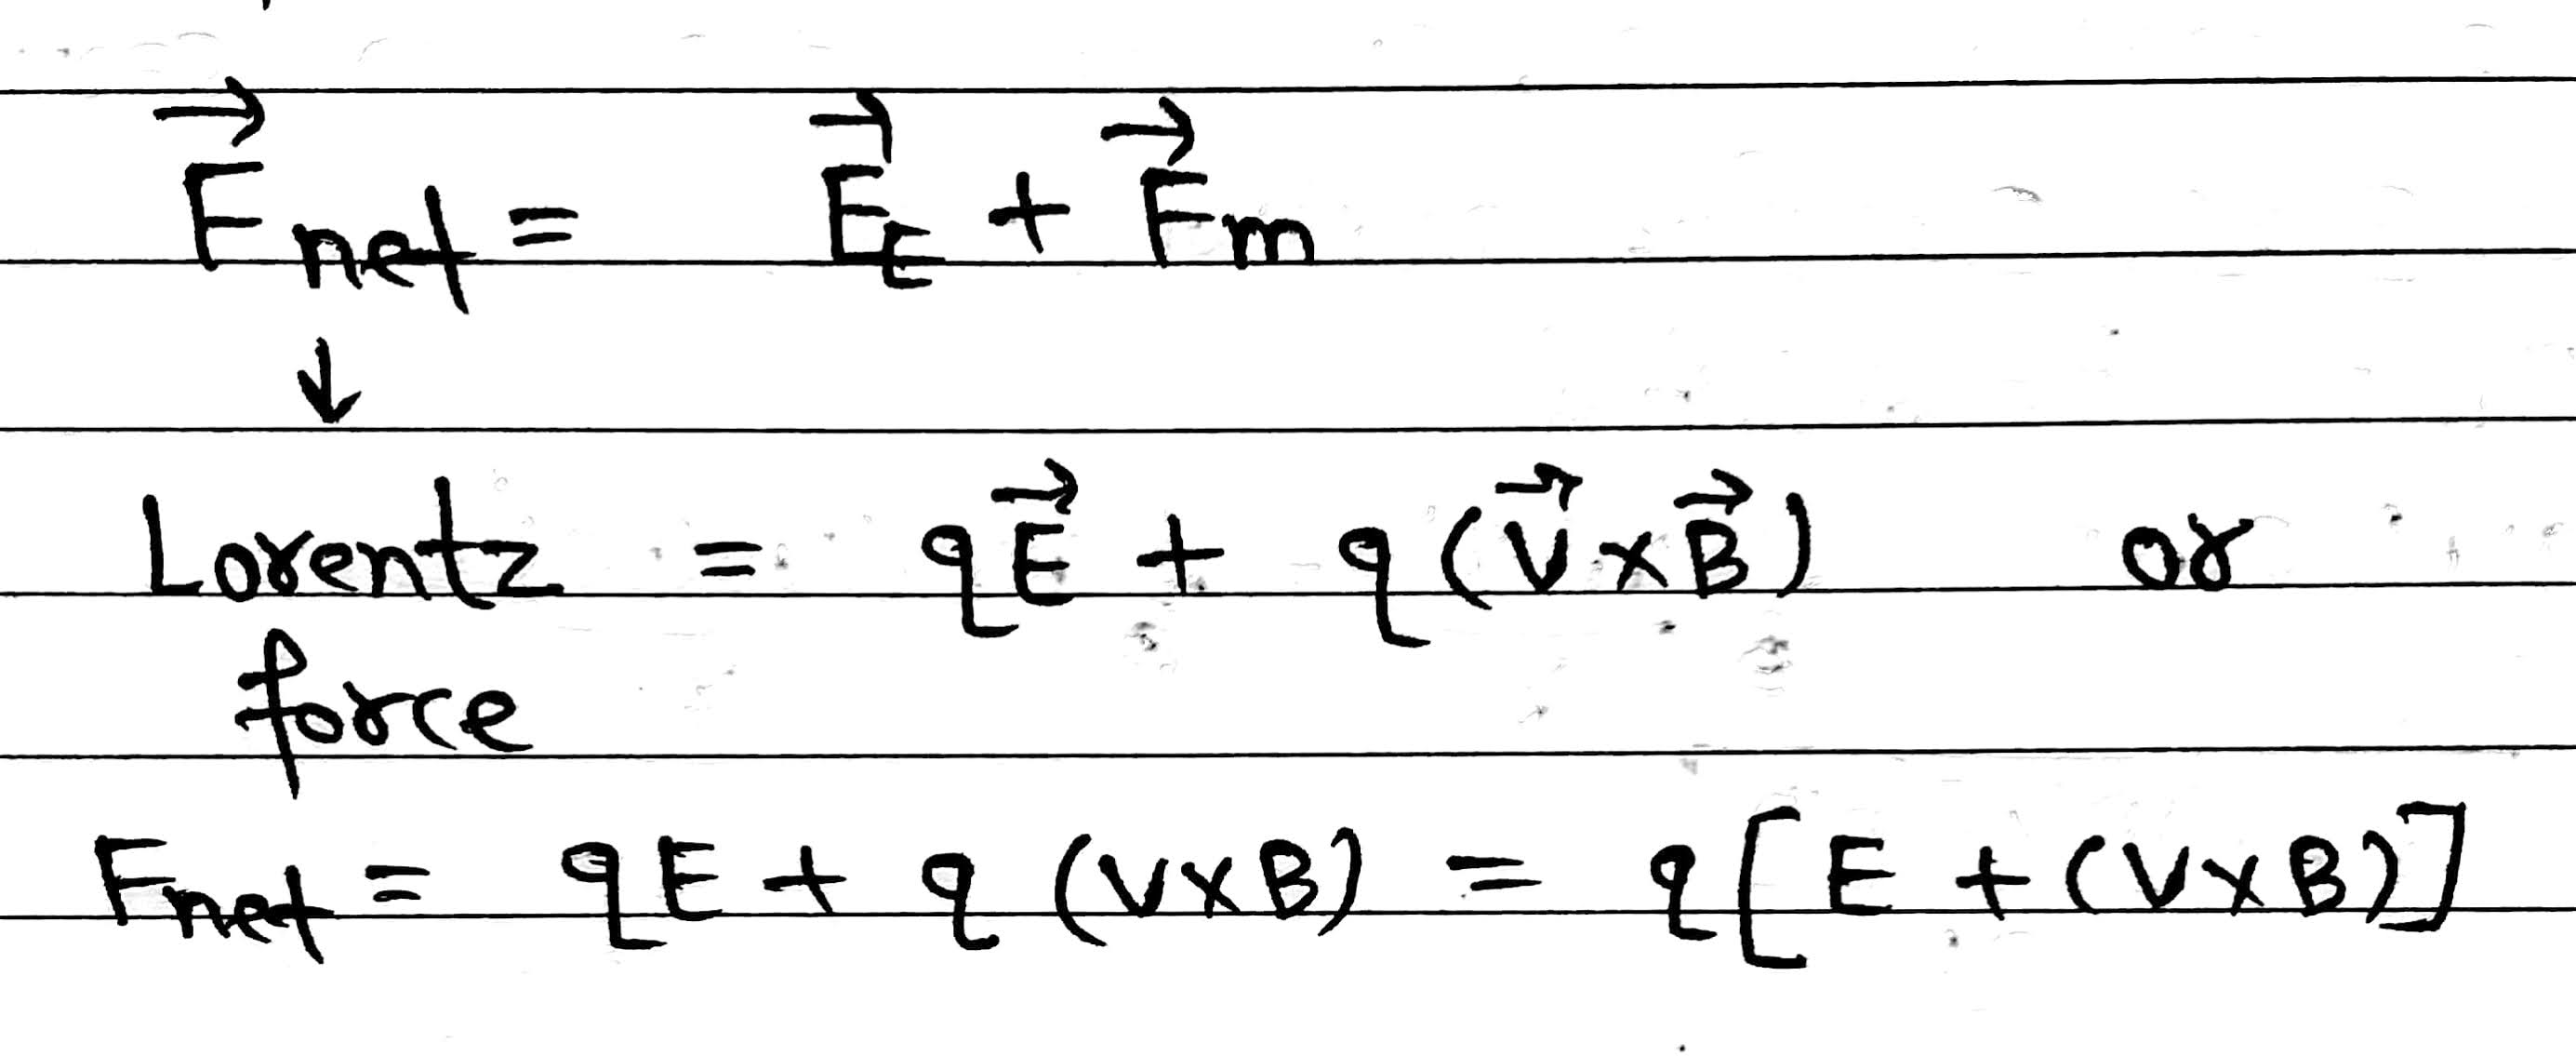 $\vec{F}_{net} = \vec{E}_E + \vec{F}_m$
↓
Lorentz = $q\vec{E} + q(\vec{V} \times \vec{B})$ or
force
$F_{net} = qE + q(V \times B) = q[E + (V \times B)]$